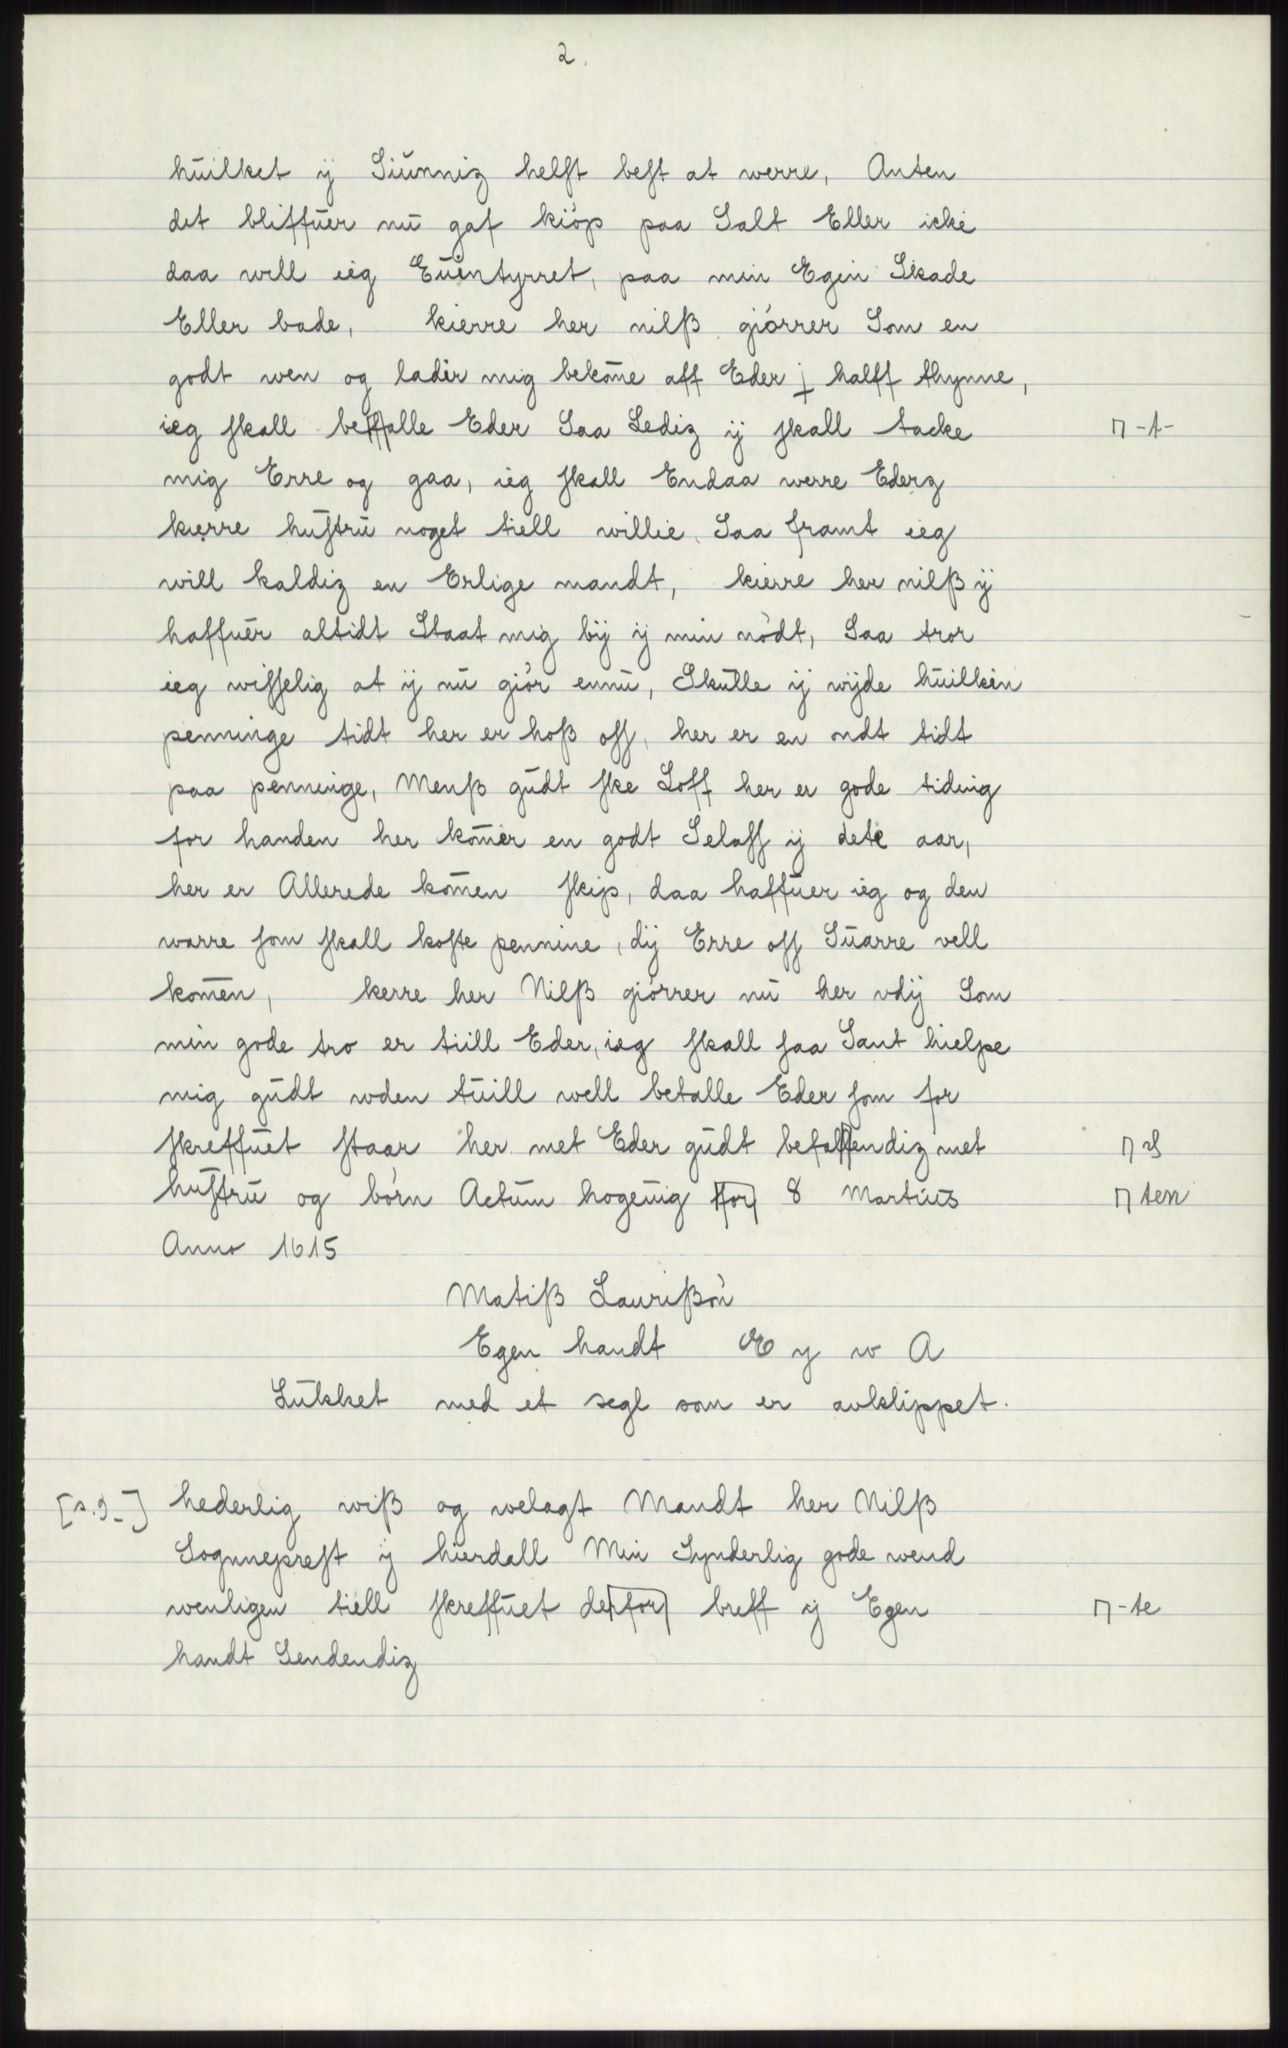 2.
huilket ÿ Siunniz helst best at werre, Anten
det bliffuer nu gaf kiöp paa Salt Eller icke
daa will ieg Euentyrret, paa min Egen Skade
Eller bade, kierre her nilß giörrer Som en
godt wen og lader mig bekōme aff Eder ½ halff thynne,
ieg skall betalle Eder Saa Lediz ÿ skall tacke
⊓ -t-
mig Erre og gaa, ieg skall Endaa werre Ederz
kierre hustru noget tiell willie, Saa framt ieg
will kaldiz en Erlige mandt, kierre her nilß ÿ
haffuer altidt Staat mig bÿ ÿ min nödt, Saa tror
ieg wisselig at ÿ nu giör ennu, Skulle ÿ wÿde huilken
penninge tidt her er hoß oss, her er en ondt tidt
paa penninge, Menß gudt ske Loff her er gode tiding
for handen her kōmer en godt Selass ÿ dete aar,
her er Allerede kōmen skip, daa haffuer ieg og den
warre som skall koste pennine, dÿ Erre oss Suarre vell
komēn, kerre her Nilß giörrer nu her vdÿ Som
min gode tro er tiill Eder, ieg skall saa Sant hielpe
mig gudt wden tuill well betalle Eder som for
skreffuet staar her met Eder gudt befallendiz met
⊓ ls
hustru og börn Actum hogeuig for 8 Martius
⊓ ten
Anno 1615
Matiß Laurißön
Egen handt E y w A
Lukket med et segl som er avklippet.
[s. 2_] hederlig wiß og welagt Mandt her Nilß
Sognneprest ÿ hierdall Min Synderlig gode wend
wenligen tiell skreffuet de for breff ÿ Egen
⊓ -te
handt Sendendiz